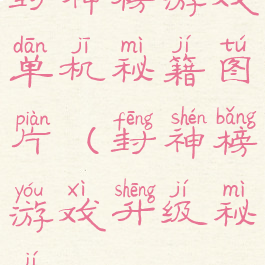 封神榜游戏
dān jī mì jí tú
单机秘籍图
piàn fēng shén bǎng
片（封神榜
yóu xì shēng jí mì
游戏升级秘
jí